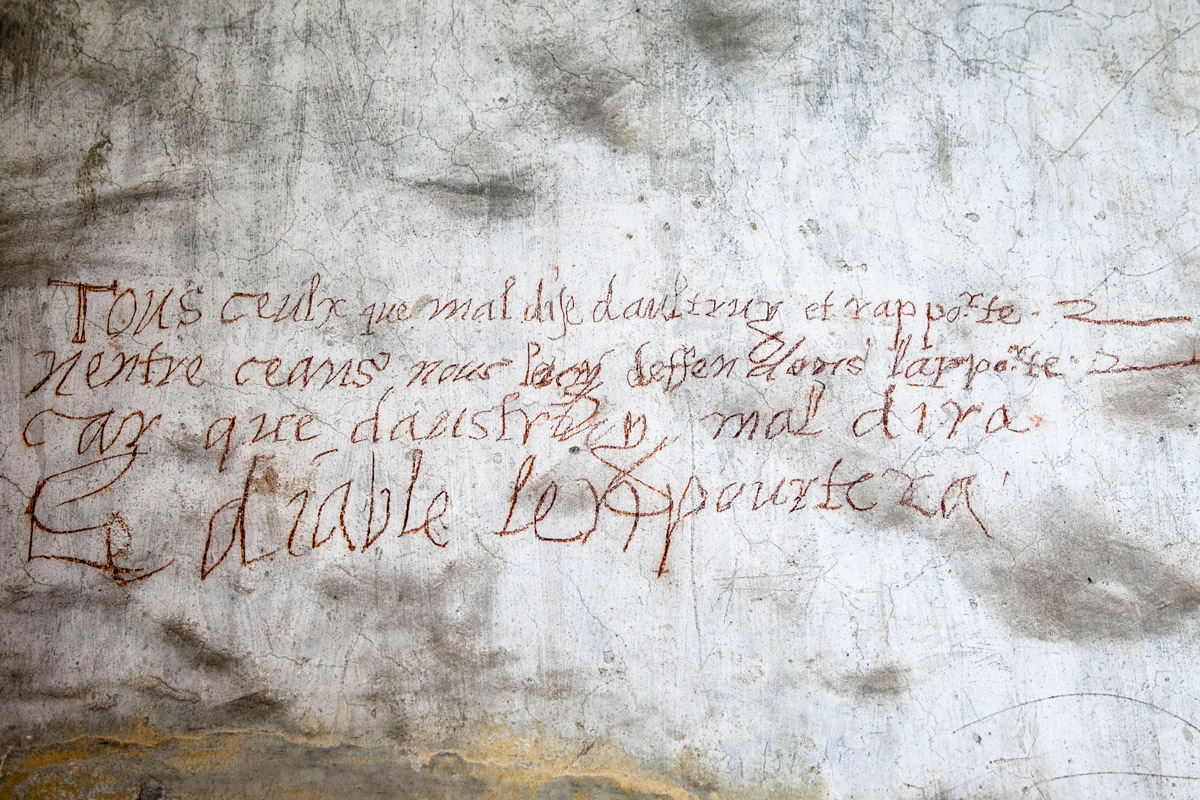 Tous ceulx que mal dise daultruy et rapporte
Nentre ceans nous luy deffendons lapporte
Car que daustruy mal dira
Le diable lexpourtera